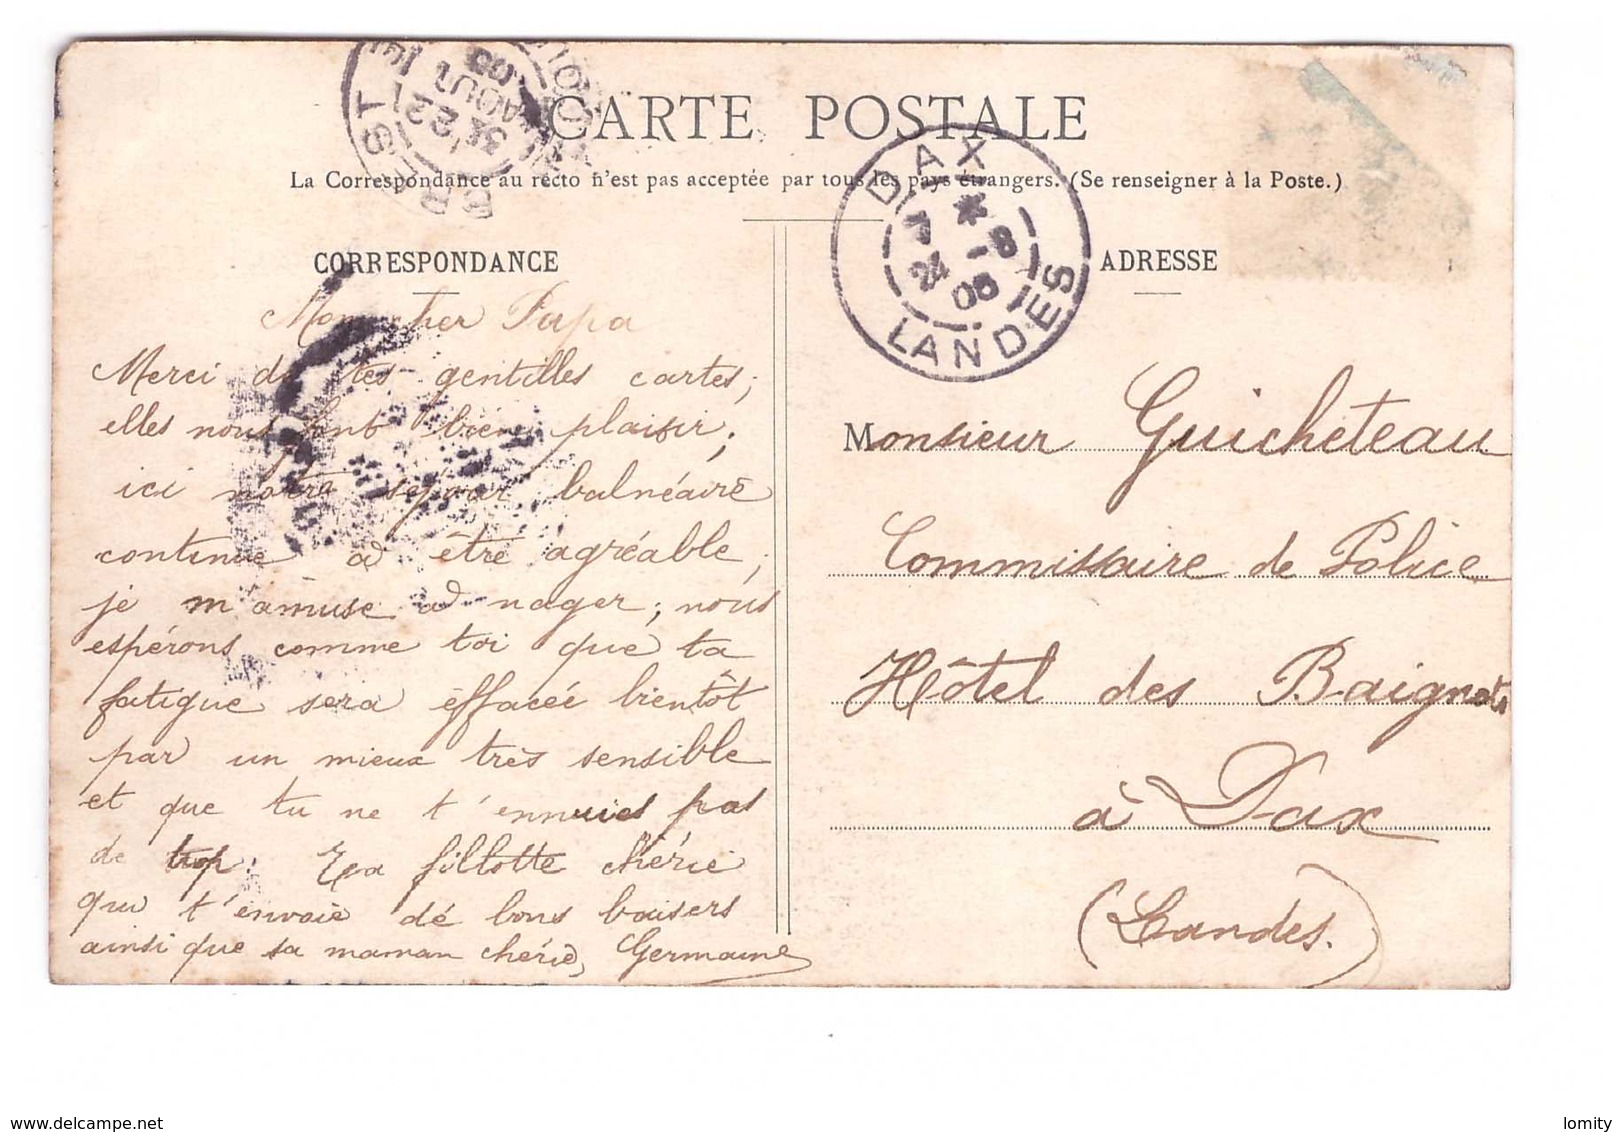 CARTE POSTALE
La Correspondance au recto n'est pas acceptée par tous les pays étrangers. (Se renseigner à la Poste.)
BREST
DAX
7 * 24 -8 06
LANDES
CORRESPONDANCE
Mon cher Papa
Merci de tes gentilles cartes;
elles nous font bien plaisir;
ici notre séjour balnéaire
continue à être agréable;
je m'amuse à nager; nous
espérons comme toi que ta
fatigue sera effacée bientôt
par un mieux très sensible
et que tu ne t'ennuies pas
de trop. Ta fillotte chérie
qui t'envoie de bons baisers
ainsi que sa maman chérie, Germaine
ADRESSE
Monsieur Guicheteau
Commissaire de Police
Hôtel des Baignots
à Dax
(Landes.)
delcampe.net
lomity